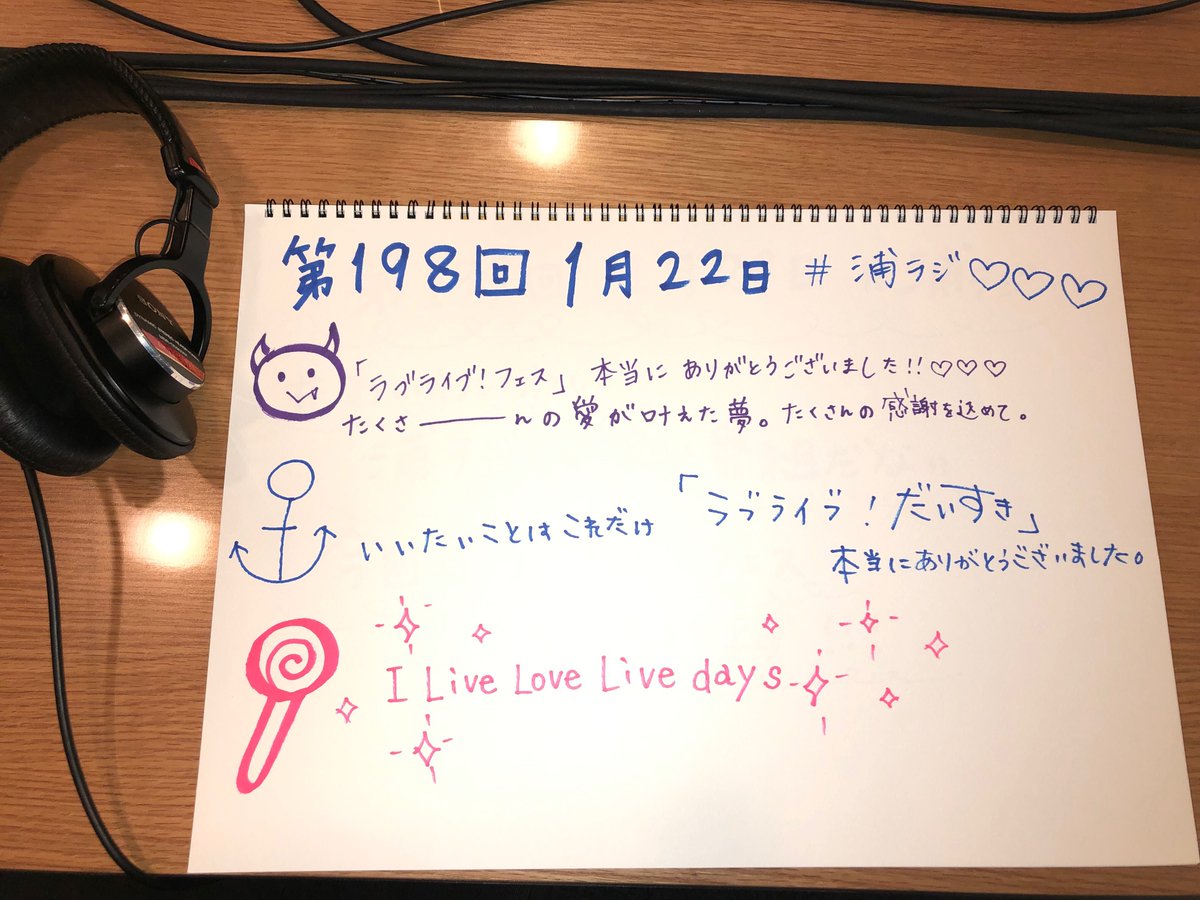 第198回 1月22日 #浦ラジ♡♡♡
「ラブライブ!フェス」 本当に ありがとうございました!!♡♡♡
たくさ――――んの愛が叶えた夢。たくさんの感謝を込めて。
いいたいことはこれだけ 「ラブライブ!だいすき」
本当にありがとうございました。
I Live Love Live days
SONY